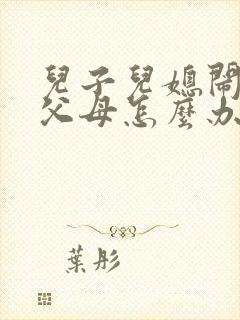 兒子兒媳鬧
父母怎麼办
葉彤